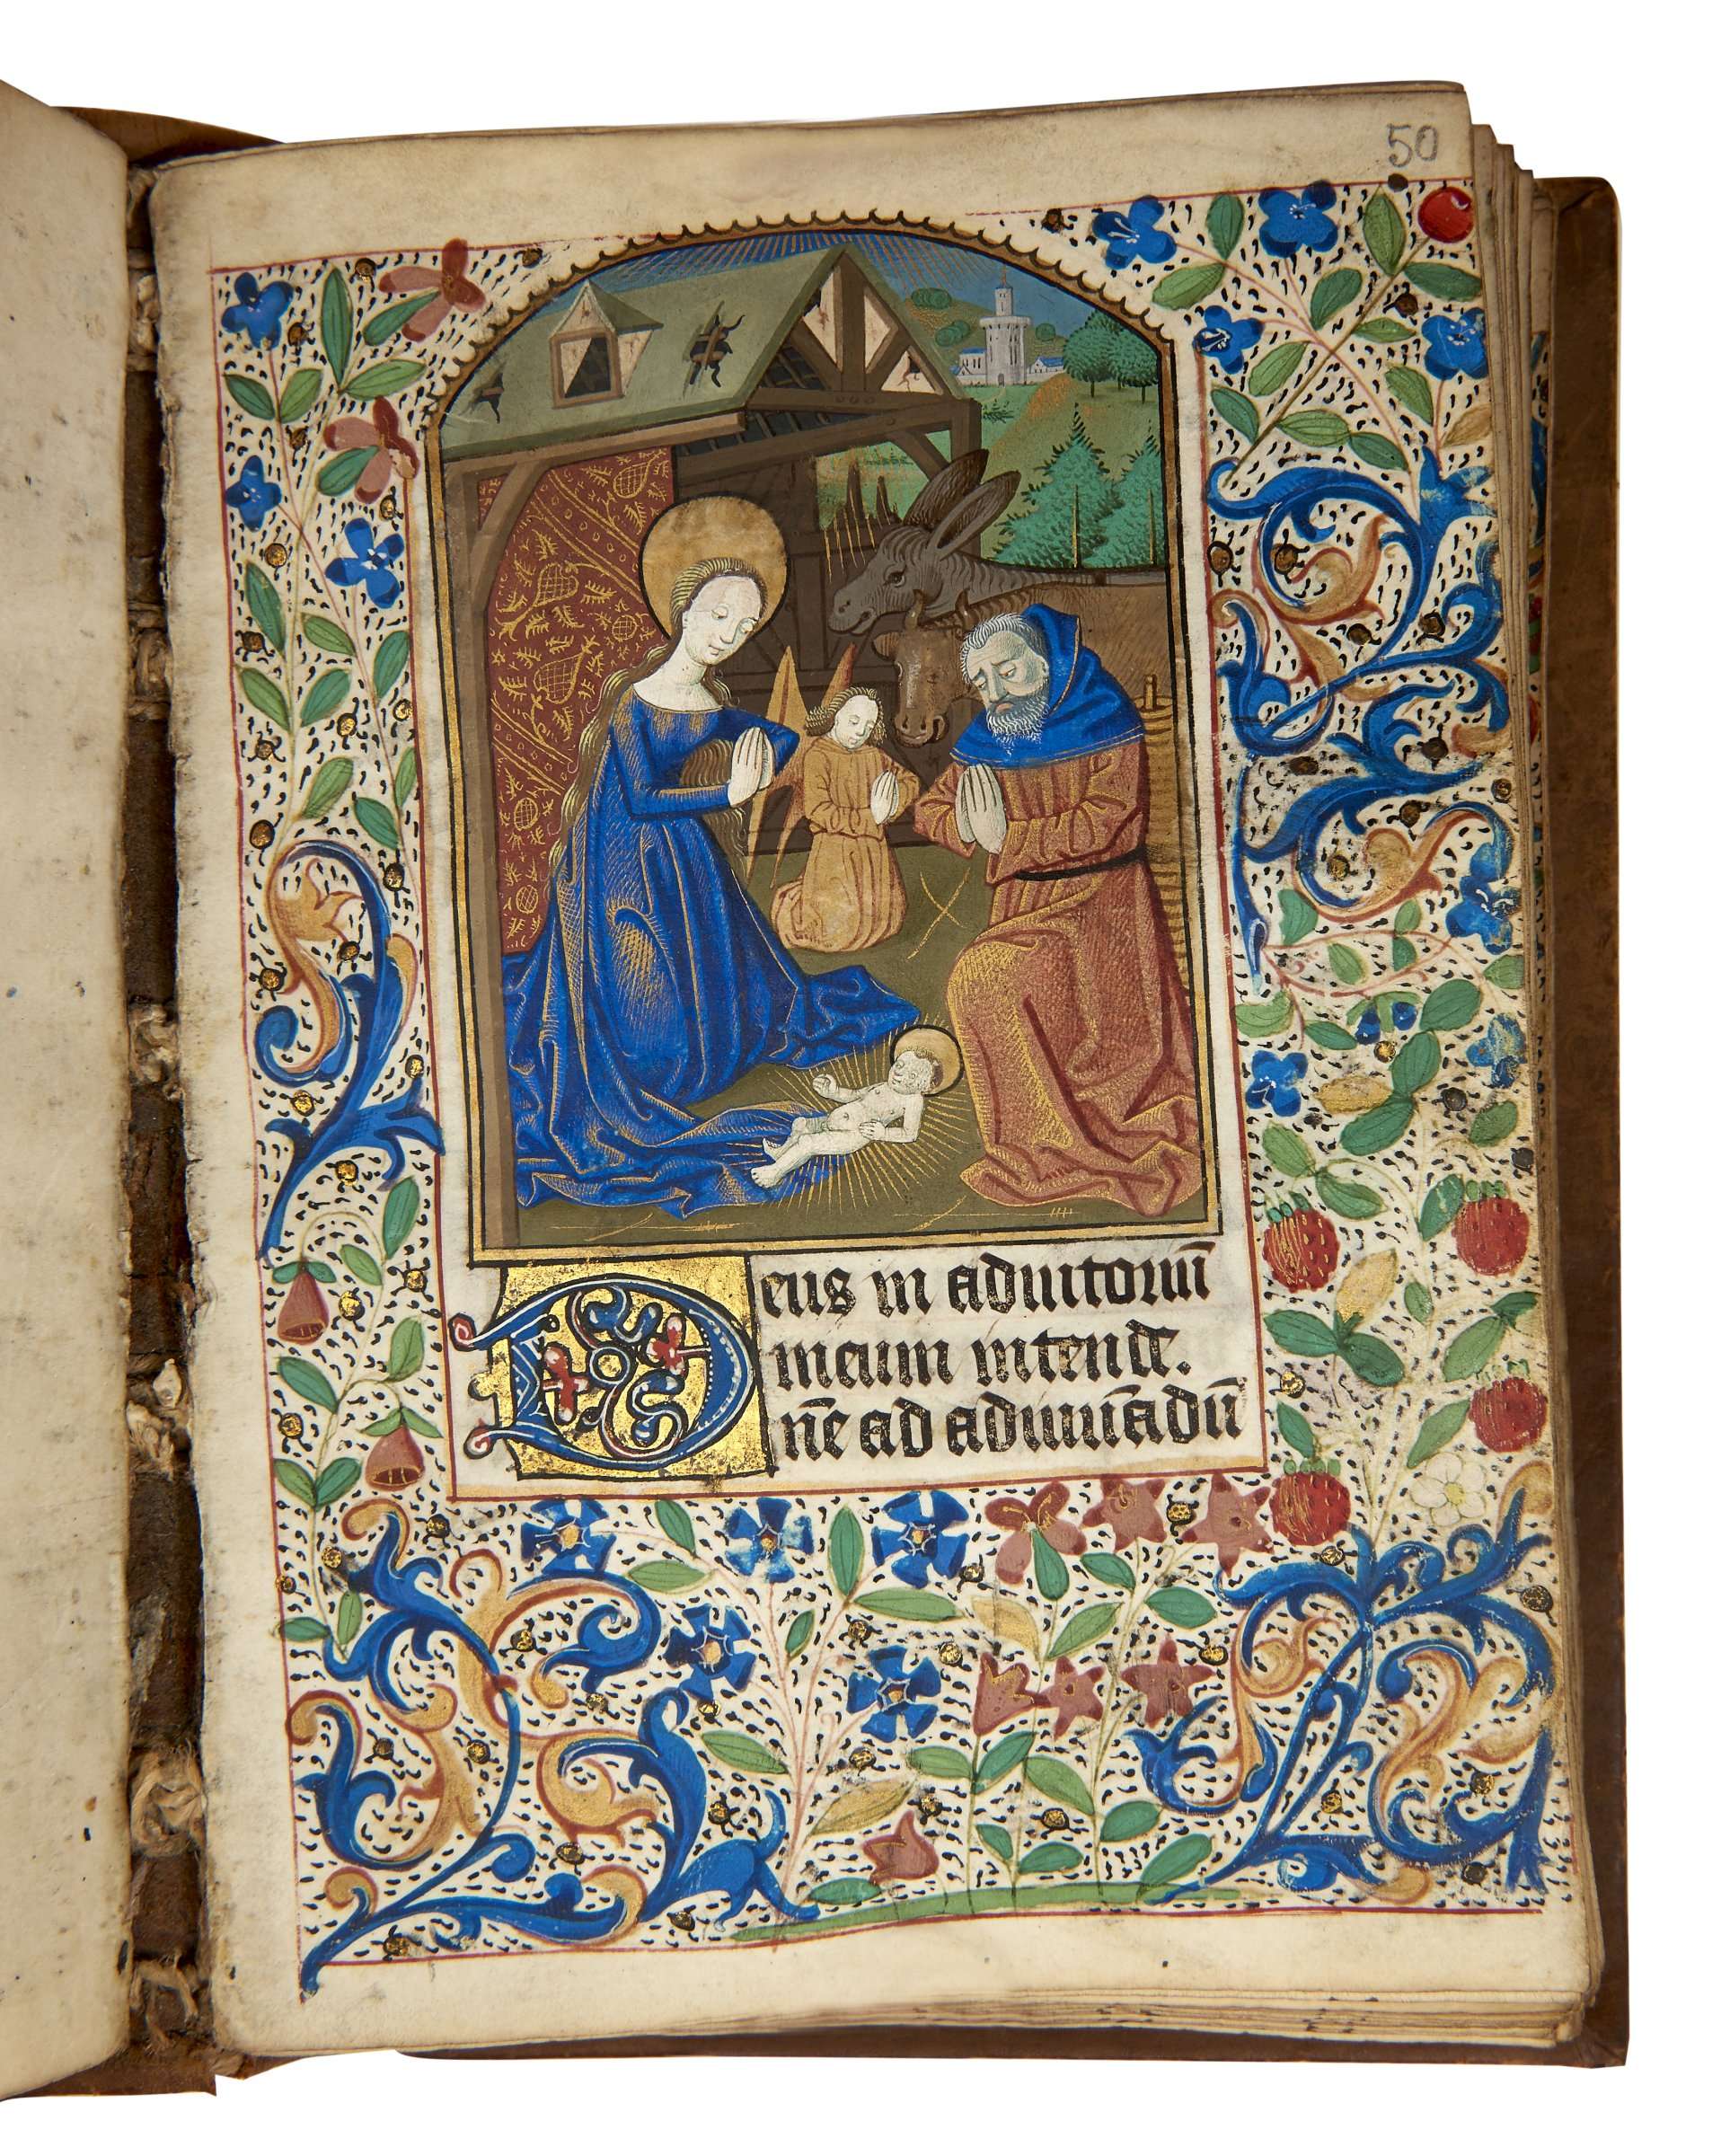 50
Deus in adiutoriū
meum intende.
Dn̄e ad adiuuādū